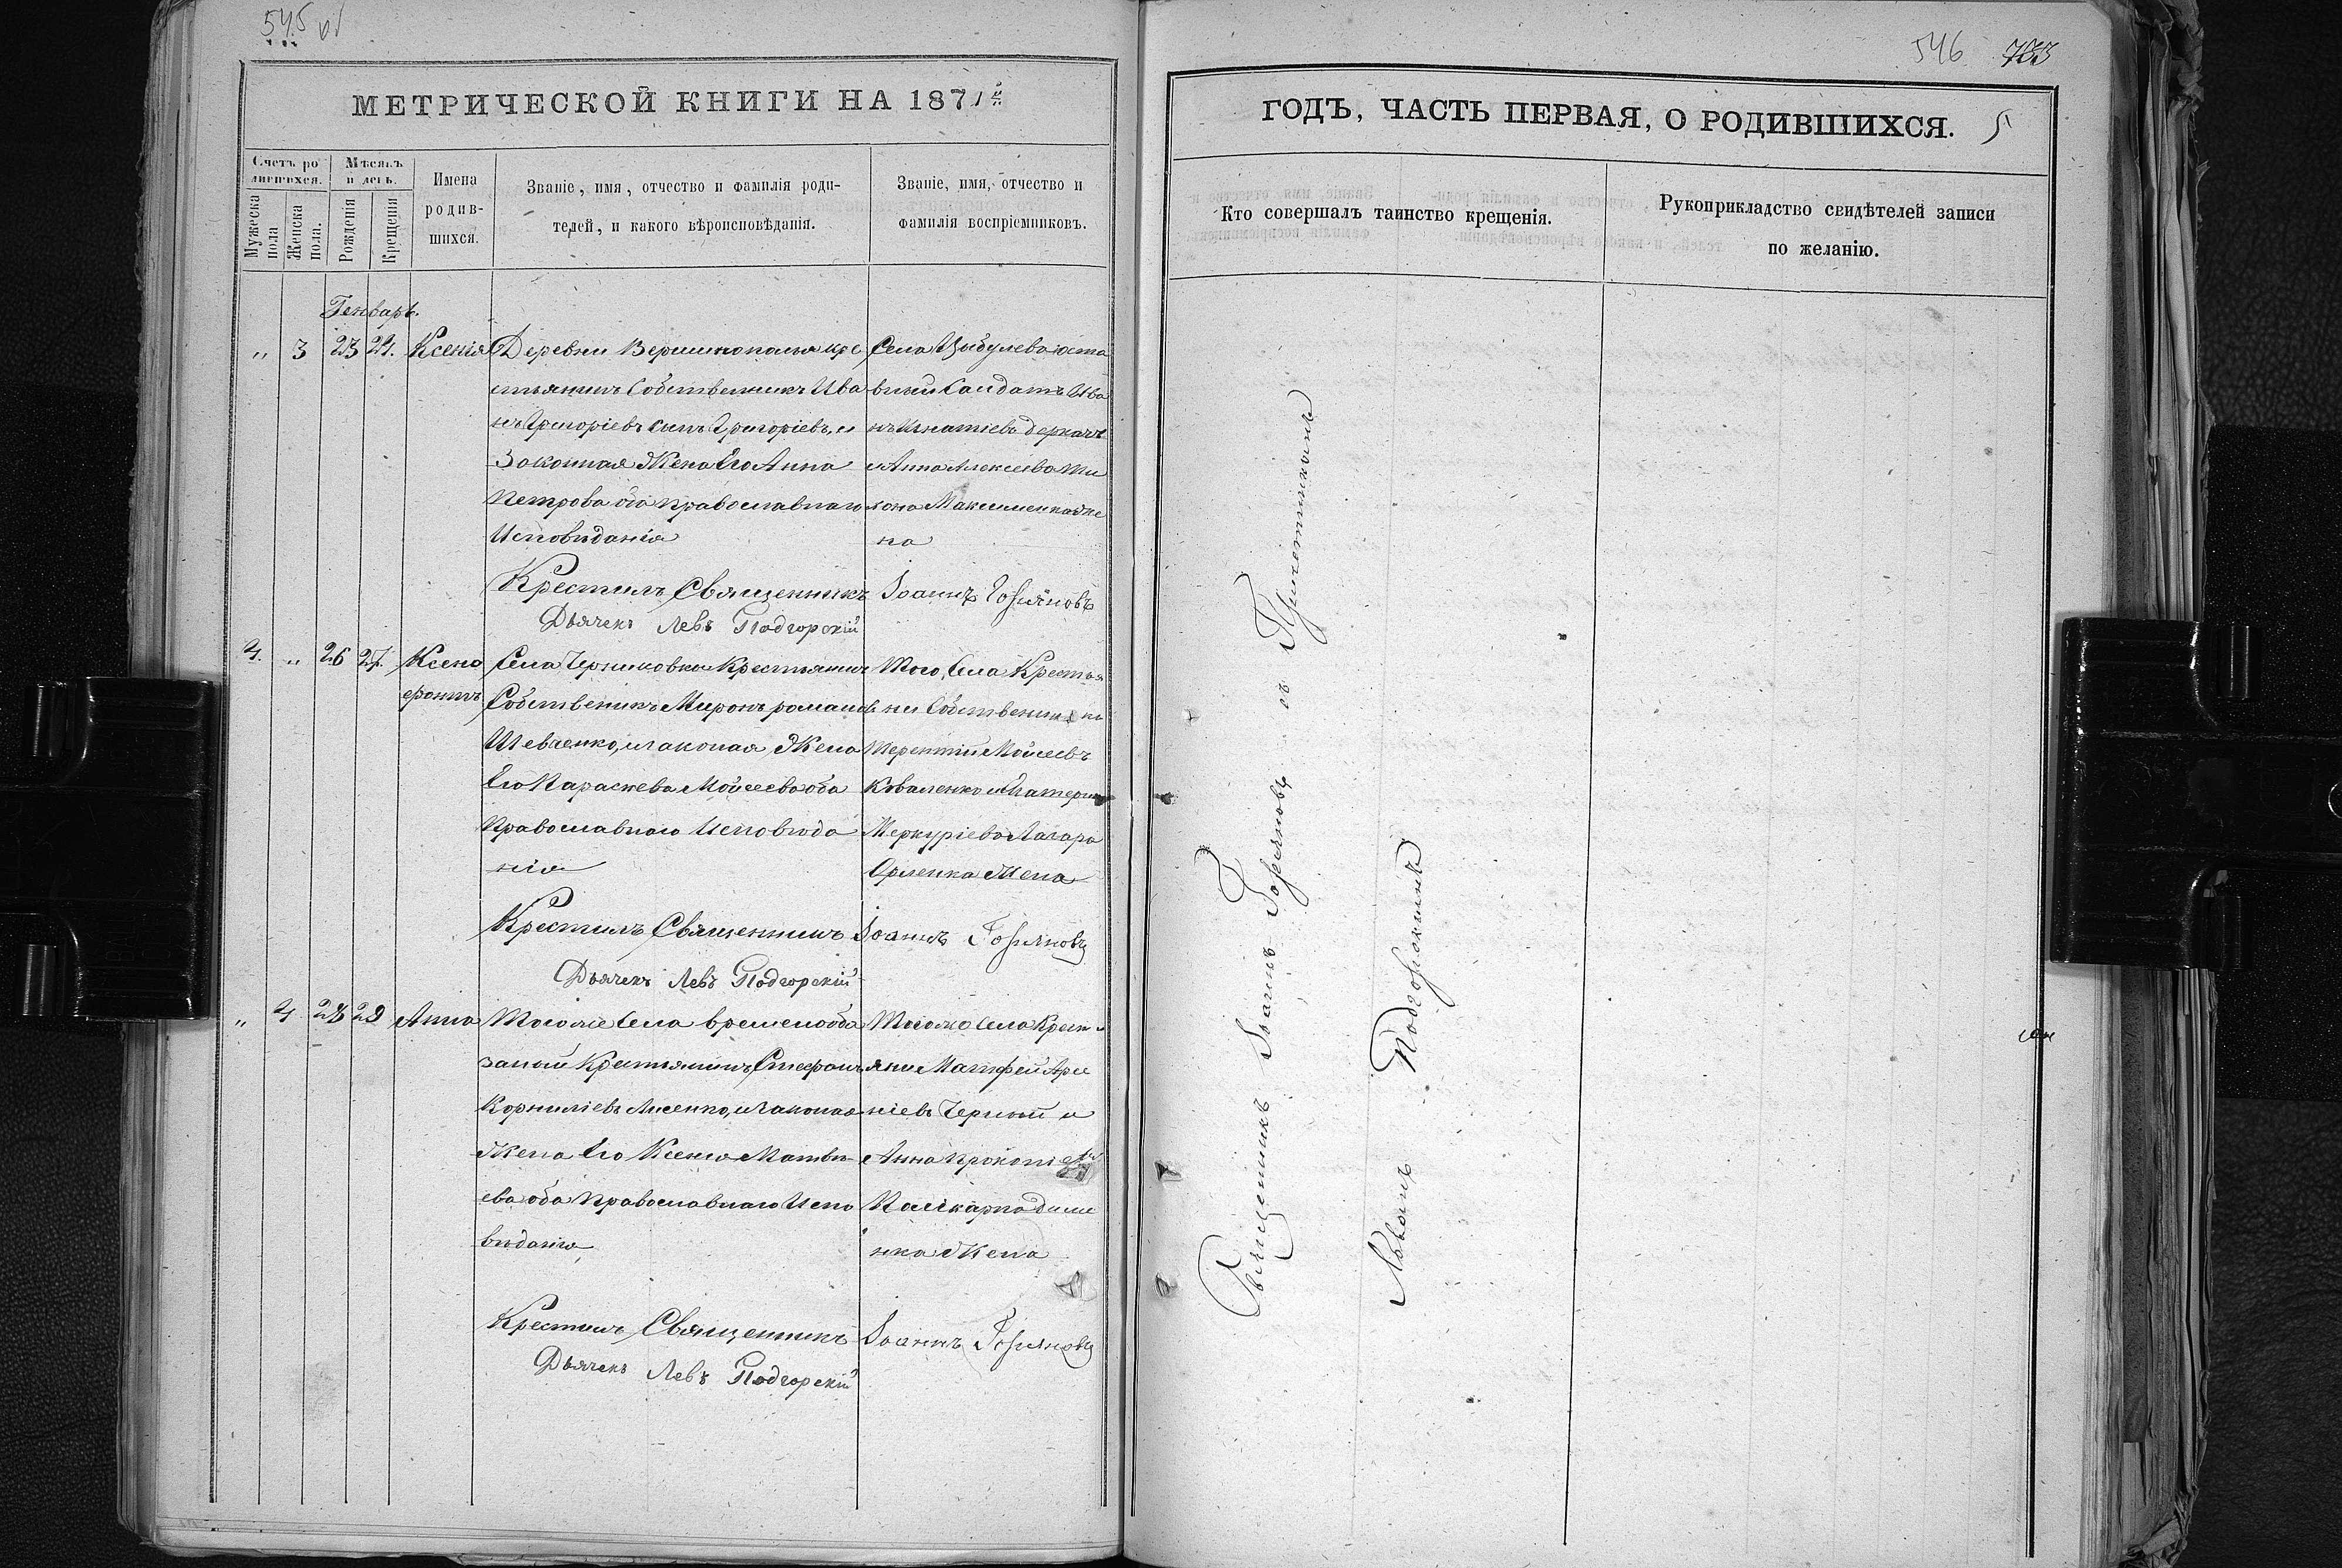 545 об
МЕТРИЧЕСКОЙ КНИГИ НА 1871й
Счетъ ро
дившихся.
Мѣсяцъ
и день.
Мужеска
пола
Женска
пола.
Рожденія
Крещенія
Имена
родив-
шихся.
Званіе, имя, отчество и фамилія роди-
телей, и какого вѣроисповѣданія.
Званіе, имя, отчество и
фамилія воспріемниковъ.
Генварь.
" 3 23 24. Ксенія
Деревни Вершинополья кре
стьянинъ Собственникъ Ива
нъ Григоріевъ сынъ Григоріевъ, и
Законная Жена Его Анна
Петрова оба православнаго
Исповѣданія
Села Цыбулева
Солдатъ Ива
нъ Игнатіевъ деркачъ
и Анна Алексеева Ти
хона Максименка же
на
Крестилъ Священникъ Іоаннъ Горяновъ
Дьячекъ Левъ Подгорскій
4. " 26 27. Ксено
фонтъ
Села Черниковки Крестьянинъ
Собственикъ Миронъ романовъ
Шевченко, и законая Жена
Его Параскева Мойсеева оба
Православнаго Исповѣда
нія
Того, Села Крестья
не Собственики
Терентій Мойсеевъ
Коваленко и Екатерина
Меркуріева Лазаря
Орленка Жена
Крестилъ Священникъ Іоаннъ Горяновъ
Дьячекъ Левъ Подгорскій
" 4 28 29 Анна
Того же Села временнообя
заный Крестьянинъ Стефанъ
Корниліевъ Лисенко, и законая
Жена Его Ксенія Матвѣ
ева оба Православнаго Испо
вѣданія
Того же Села Кресть
яне Матфей Арсе
ніевъ Черный и
Анна Прокопіева
Поликарпа
нка Жена
Крестилъ Священникъ Іоаннъ Горяновъ
Дьячекъ Левъ Подгорскій
546 703
ГОДЪ, ЧАСТЬ ПЕРВАЯ, О РОДИВШИХСЯ. 5
Кто совершалъ таинство крещенія.
Рукоприкладство свидѣтелей записи
по желанію.
Священникъ Іоаннъ Горяновъ съ Причетникомъ
Львомъ Подгорскимъ